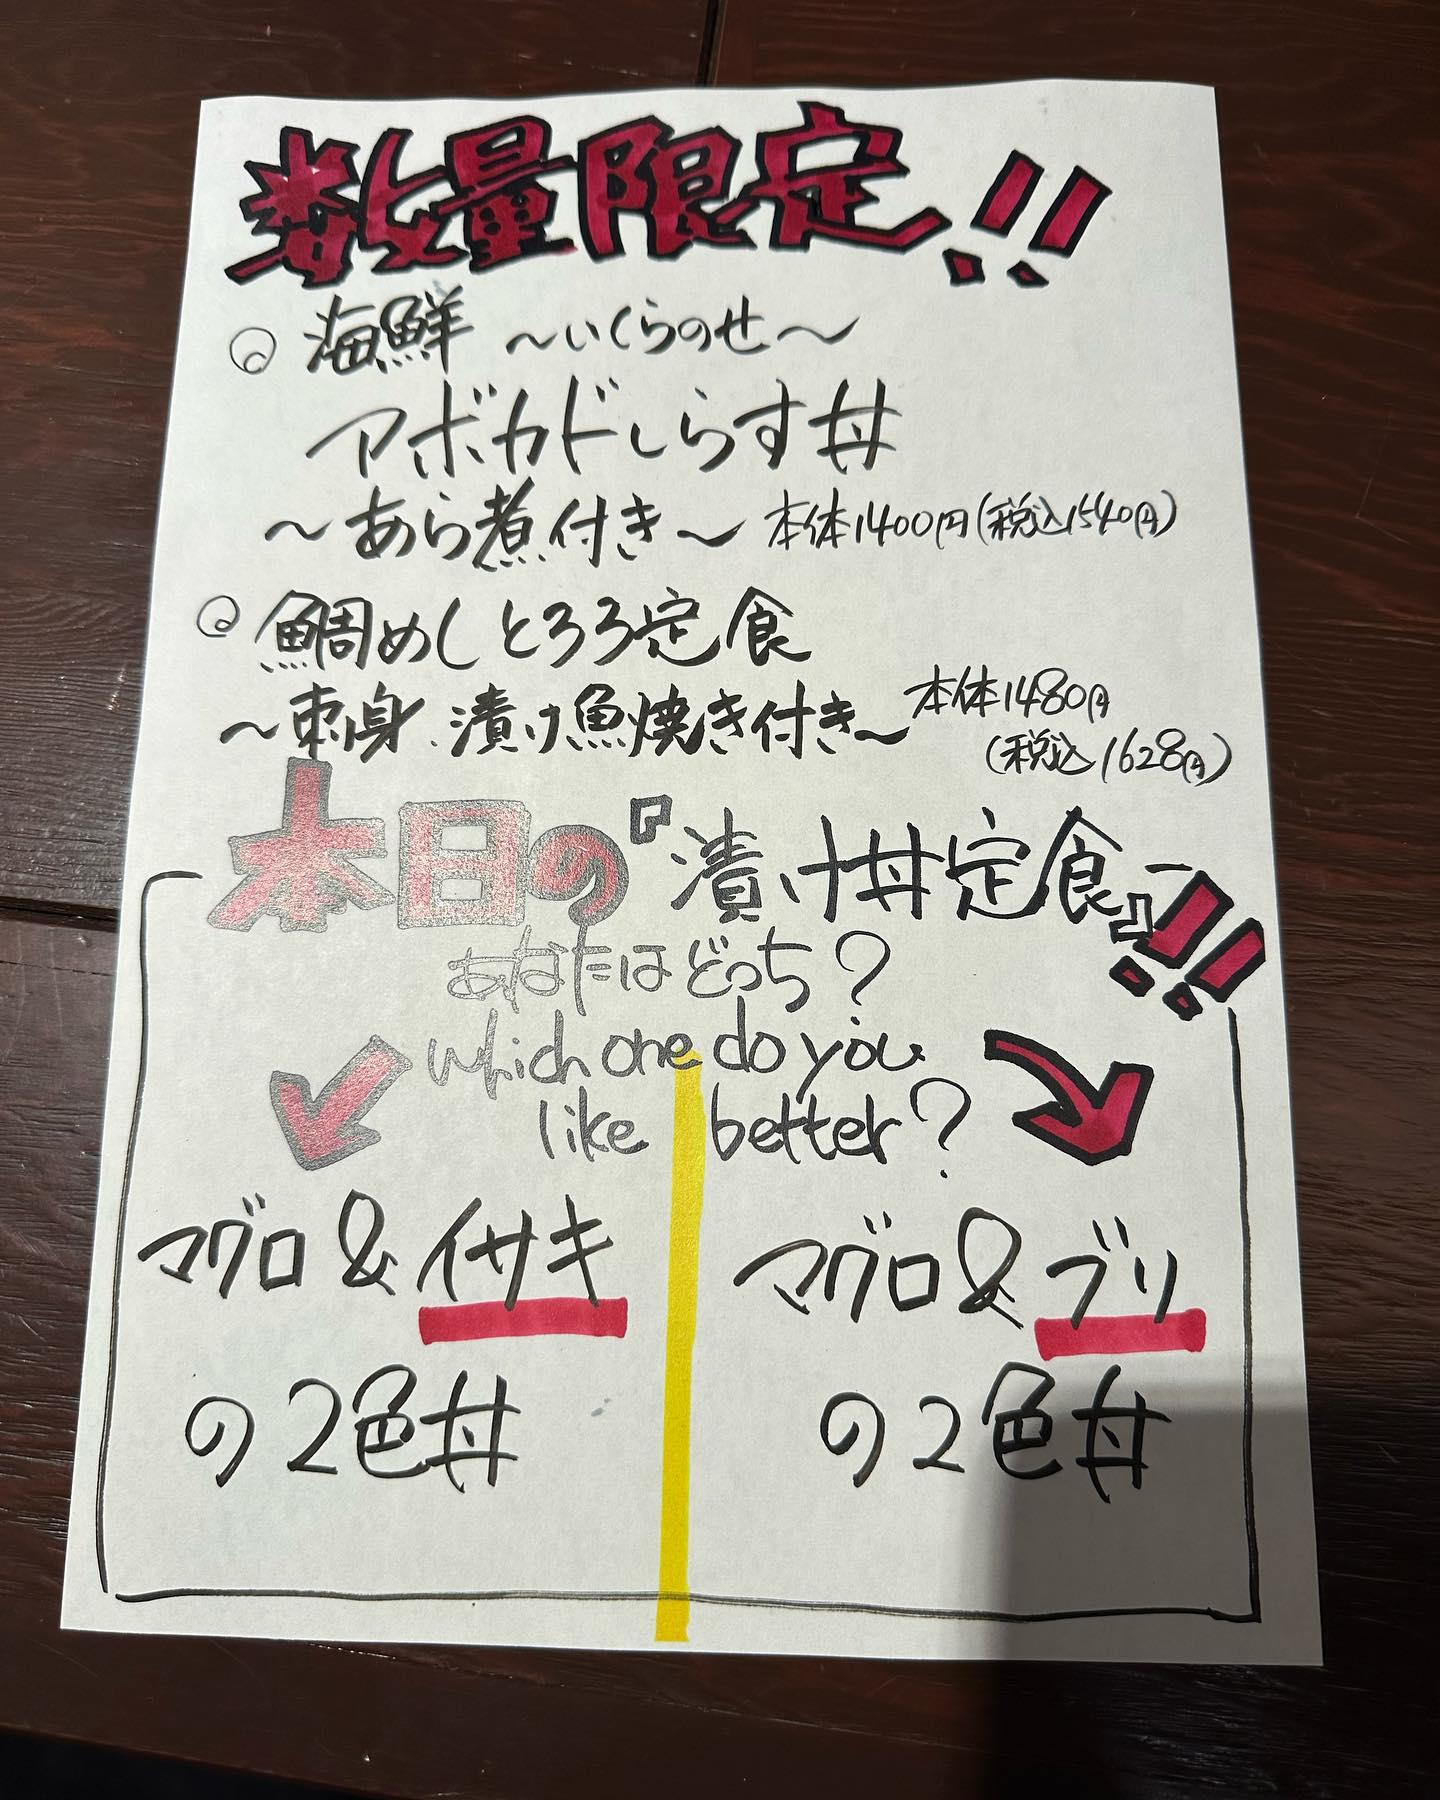 数量限定!!
◎海鮮 〜いくらのせ〜
アボカドしらす丼
〜あら煮付き〜 本体1400円(税込1540円)
◎鯛めしとろろ定食
〜刺身、漬け魚焼き付き〜 本体1480円
(税込1628円)
本日の『漬け丼定食』!!
あなたはどっち?
which one do you
like better?
マグロ&イサキ
の2色丼
マグロ&ブリ
の2色丼